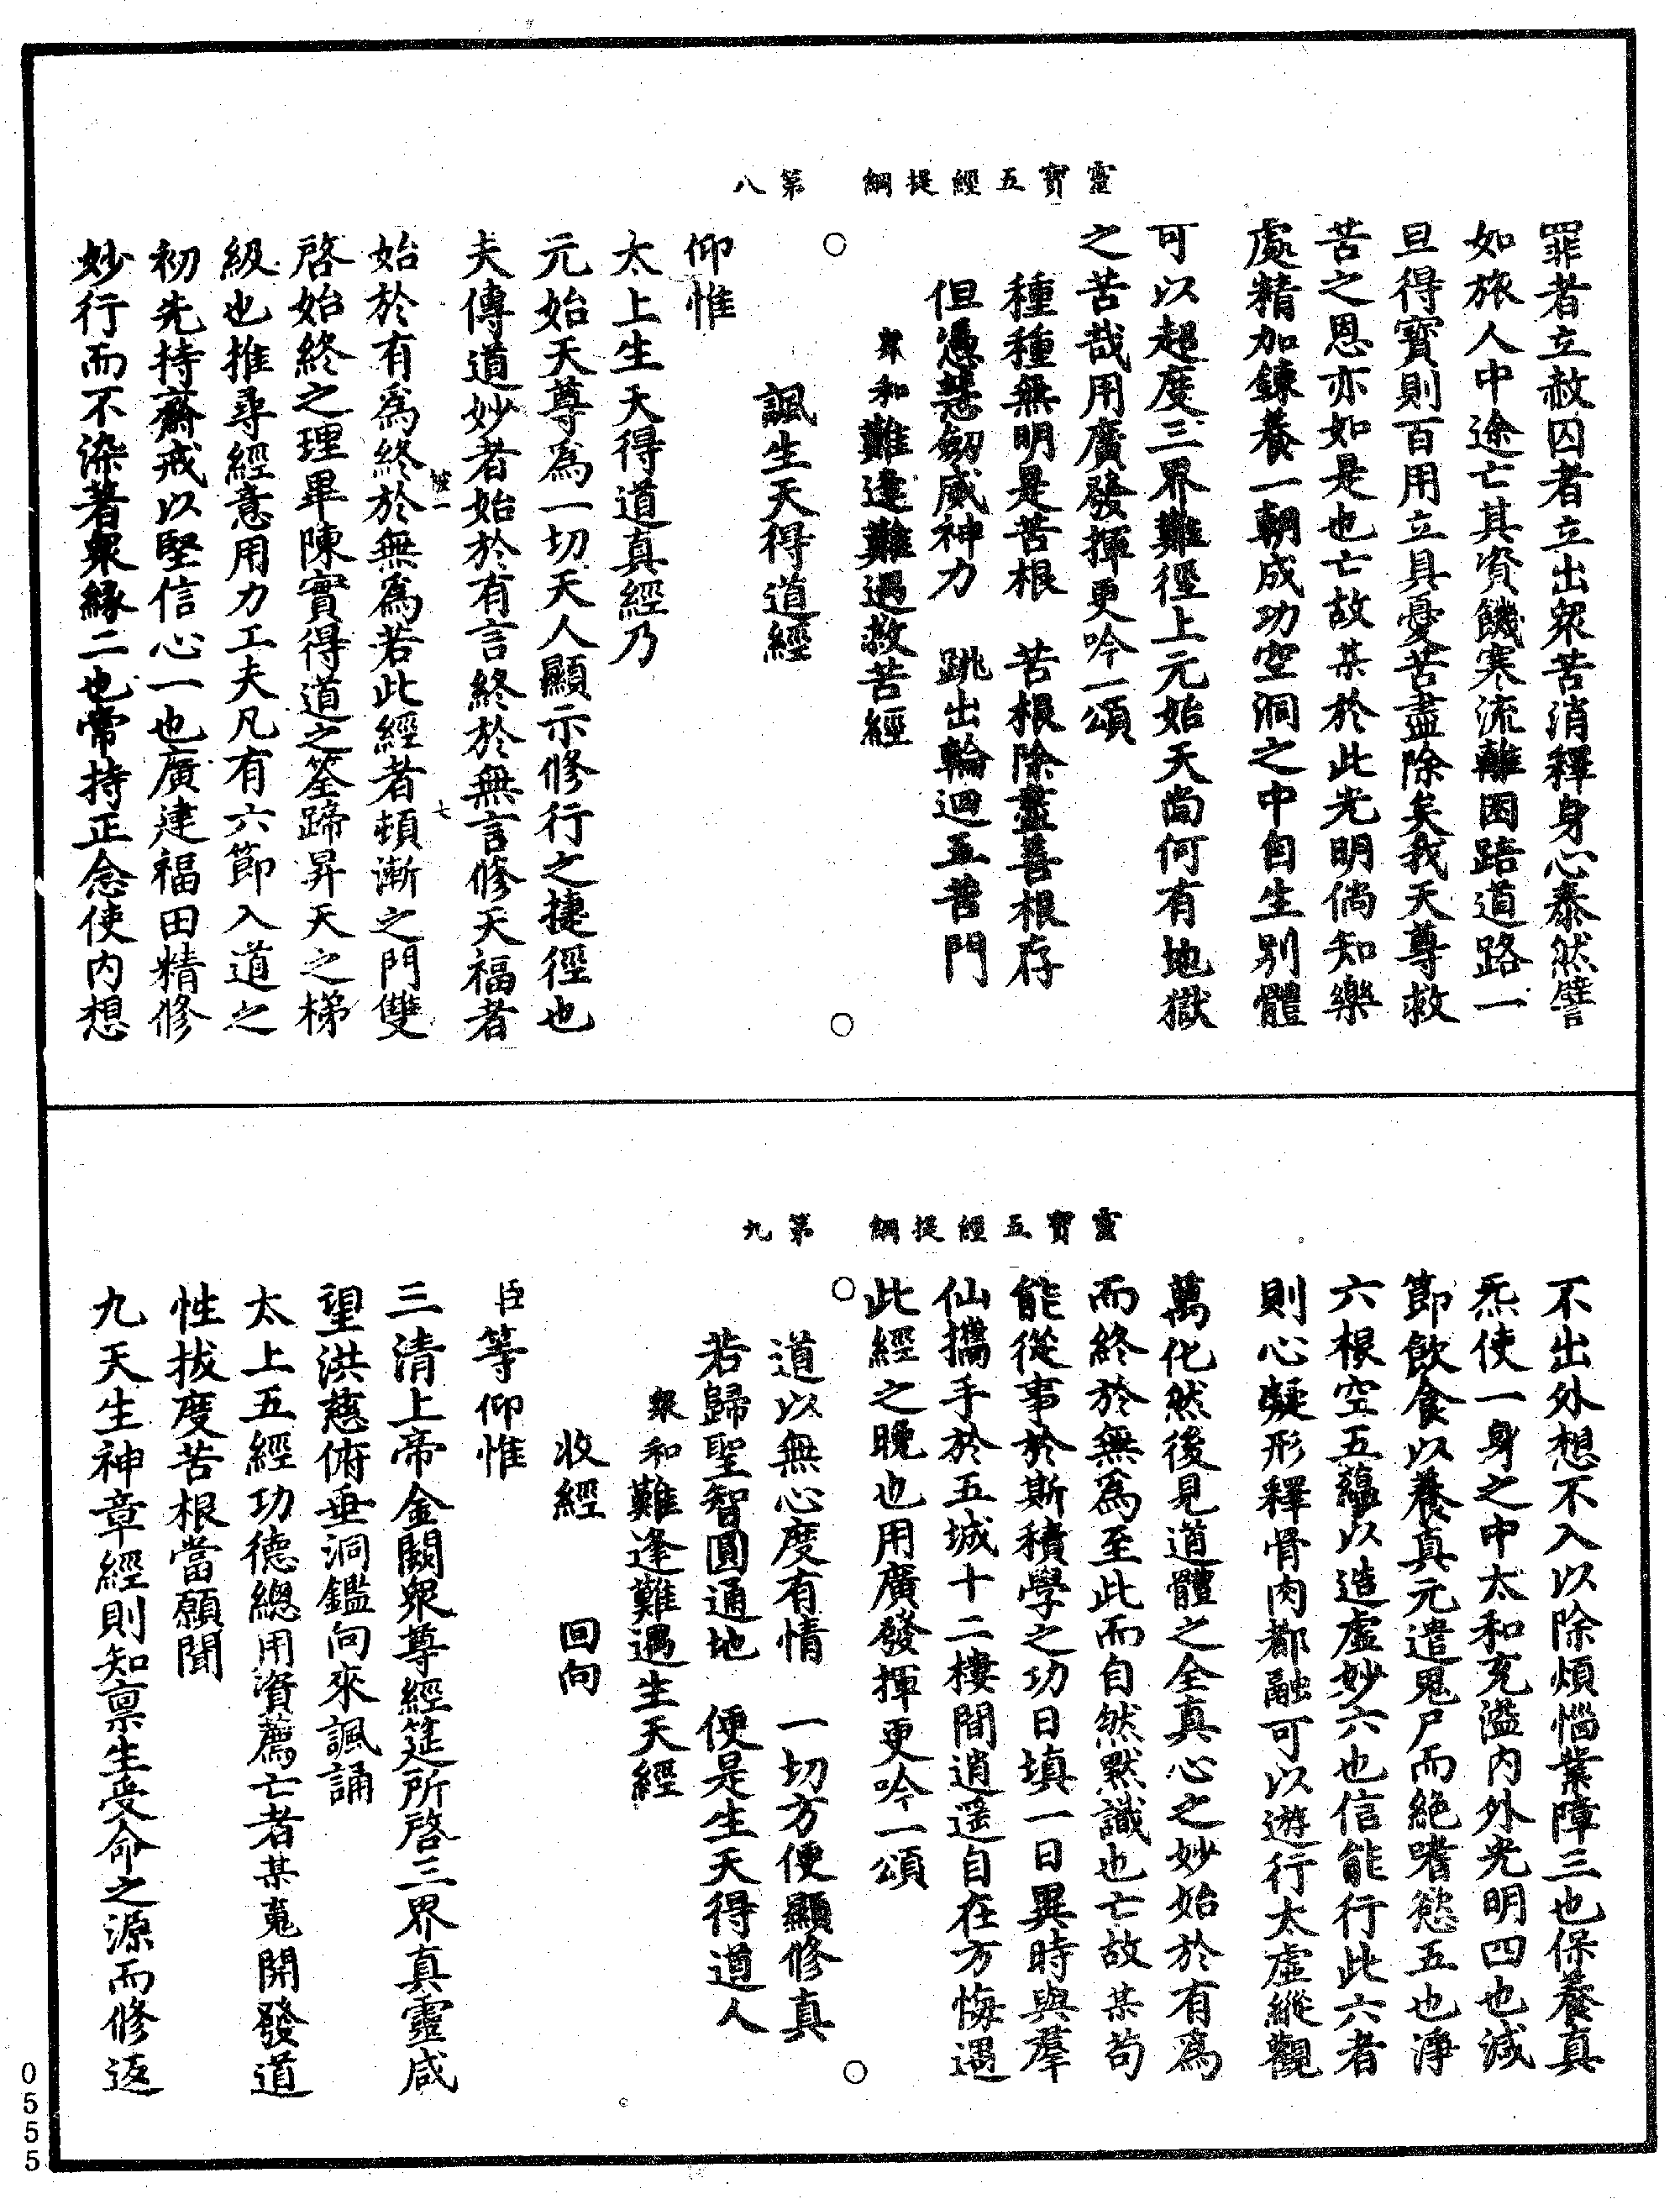 靈寶五經提綱 第八
罪者立赦囚者立出衆苦消釋身心泰然譬
如旅人中途亡其資饑寒流離困踣道路一
旦得寶則百用立具憂苦盡除矣我天尊救
苦之恩亦如是也亡故某於此光明倘知樂
處精加鍊養一朝成功空洞之中自生別體
可以超度三界難徑上元始天尚何有地獄
之苦哉用廣發揮更吟一頌
種種無明是苦根 苦根除盡善根存
但憑慧劒威神力 跳出輪迴五苦門
衆和難逢難遇救苦經
○ ○
諷生天得道經
仰惟
太上生天得道真經乃
元始天尊爲一切天人顯示修行之捷徑也
夫傳道妙者始於有言終於無言修天福者
一 七
始於有爲終於無爲若此經者頓漸之門雙
啓始終之理畢陳實得道之筌蹄昇天之梯
級也推尋經意用力工夫凡有六節入道之
初先持齋戒以堅信心一也廣建福田精修
妙行而不染著衆緣二也常持正念使内想
靈寶五經提綱 第九
不出外想不入以除煩惱業障三也保養真
炁使一身之中太和充溢内外光明四也減
節飲食以養真元遣鬼尸而絶嗜慾五也淨
六根空五蘊以造虛妙六也信能行此六者
則心凝形釋骨肉都融可以遊行太虛縱觀
萬化然後見道體之全真心之妙始於有爲
而終於無爲至此而自然默識也亡故某苟
能從事於斯積學之功日填一日異時與羣
仙攜手於五城十二樓間逍遥自在方悔遇
此經之晚也用廣發揮更吟一頌
○ ○
道以無心度有情 一切方便顯修真
若歸聖智圓通地 便是生天得道人
衆和難逢難遇生天經
收經 回向
臣等仰惟
三清上帝金闕衆尊經筵所啓三界真靈咸
望洪慈俯垂洞鑑向來諷誦
太上五經功德總用資薦亡者某䰟開發道
性拔度苦根當願聞
九天生神章經則知禀生受命之源而修返
0555